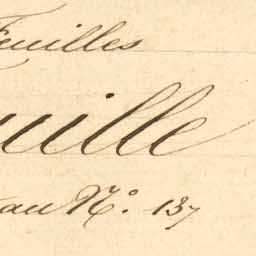 Feuilles
uille
au N.º 137